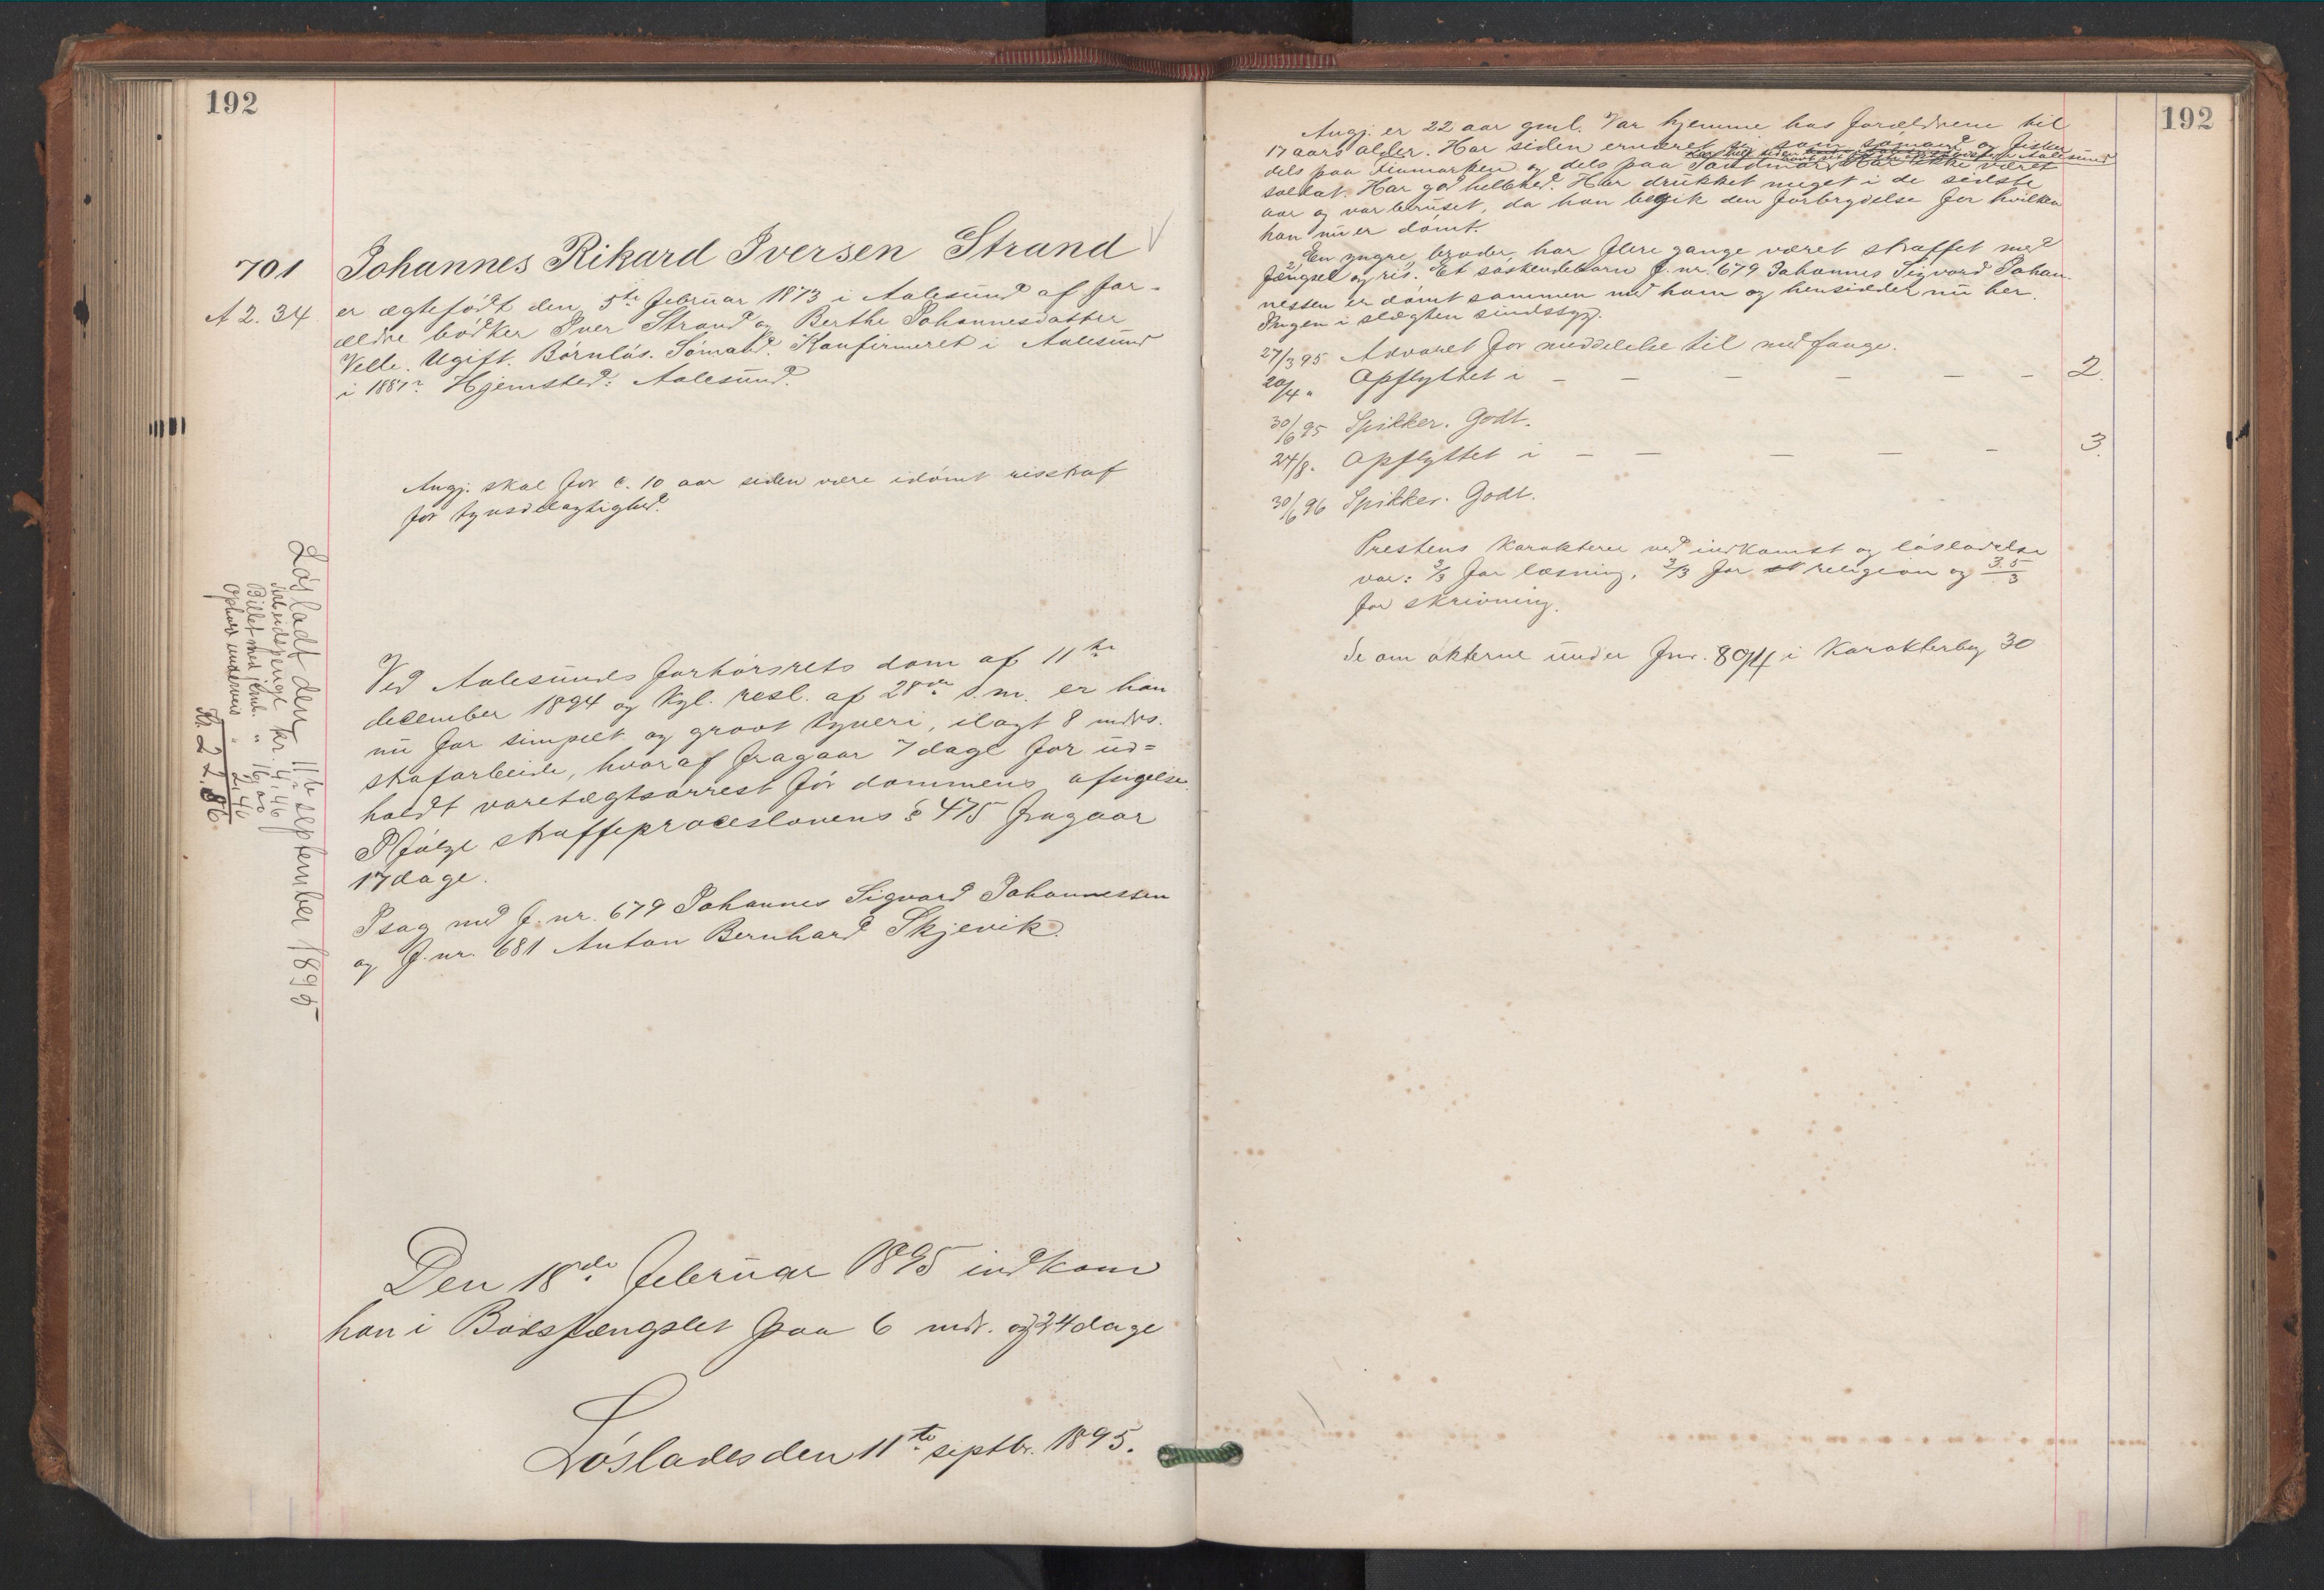 192
701
A 2. 34
Johannes Rikard Iversen Strand
er ægtefødt den 5te februar 1873 i Aalesund af for-
ældre bødker Iver Strand og Berthe Johannesdatter
Velle. Ugift. Børnløs. Sømand. Konfirmeret i Aalesund
i 1887. Hjemsted: Aalesund.
Angj. skal for c. 10 aar siden være idømt risstraf
for tyvsdelagtighed.
Ved Aalesunds forhørsrets dom af 11te
december 1894 og kgl. resl. af 28de s.m. er han
nu for simpelt og grovt tyveri, ilagt 8 mdrs.
strafarbeide, hvoraf fragaar 7 dage for ud=
holdt varetægtsarrest før dommens afsigelse.
Ifølge straffeproceslovens § 475 fragaar
17 dage.
I sag med f. nr. 679 Johannes Sigvard Johannessen
og f. nr. 681 Anton Bernhard Skjevik.
Den 18de februar 1895 indkom
han i Bodsfængslet paa 6 mdr. og 24 dage
Løslades den 11te septbr. 1895.
Løsladt den 11te september 1895
Arbeidspenge kr. 4,46
Billet med jernb. " 16,00
Ophold underveis " 2,40
Kr. 22.86.
192
Angj. er 22 aar gml. Var hjemme hos forældrene til
17 aars alder. Har siden ernæret sig som sømand og fisker
dels paa Finmarken og dels paa Søndmør. Har ikke været
soldat. Har god helbred. Har drukket meget i de sidste
aar og var beruset, da han begik den forbrydelse for hvilken
han nu er dømt.
En yngre broder har flere gange været straffet med
fængsel og ris. Et søskendebarn f. nr. 679 Johannes Sigvard Johan-
nessen er dømt sammen med ham og hensidder nu her.
Ingen i slægten sindssyg.
27/3 95 Advaret for meddelelse til medfange.
20/4 " Opflyttet i - - - - - - 2.
30/6 95 Spikker. Godt.
24/8. Opflyttet i - - - - - 3.
30/6 96 Spikker. Godt.
Prestens karakterer ved indkomst og løsladelse
var: 3/3 for læsning, 3/3 for religion og 3.5/3
for skrivning.
Se om akterne under Jnr. 894 i Karakterbog 30